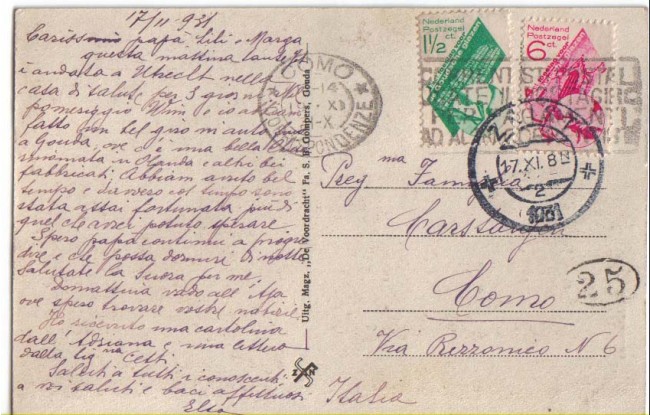 17/11 931
Carissimi papà, Lili e Marga,
questa mattina
è andata a Utrecht nella
casa di salute per 3 giorni. Nel
pomeriggio Wim e io abbiam
fatto un bel giro in auto
a Gouda, ove c'è una bella
in Olanda e altri bei
fabbricati. Abbiam avuto bel
tempo e davvero col tempo sono
stata assai fortunata più di
quel che avrei potuto sperare.
Spero papà continui a progre
dire e che possa dormire di notte.
Salutate la Suora per me.
Domattina vado all'Aja
ove spero trovare vostre notizie.
Ho ricevuto una cartolina
dall'Adriana e una lettera
dalla Sig.na Cetti.
Saluti a tutti i conoscenti,
a voi saluti e baci affettuosi
Elsa
Uitg. Magz. „De Voordracht" Fa. S. H. Gompers, Gouda
Nederland
Postzegel
1½ ct.
Nederland
Postzegel
6 ct.
COMO
CORRISPONDENZE
17.XI.8N
2
1931
Preg.ma Famiglia
Como
25
Via Rezzonico N 6
Italia